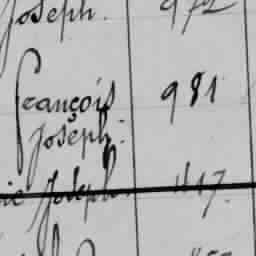 Joseph. 972
François 981
Joseph.
Joseph. 1117.